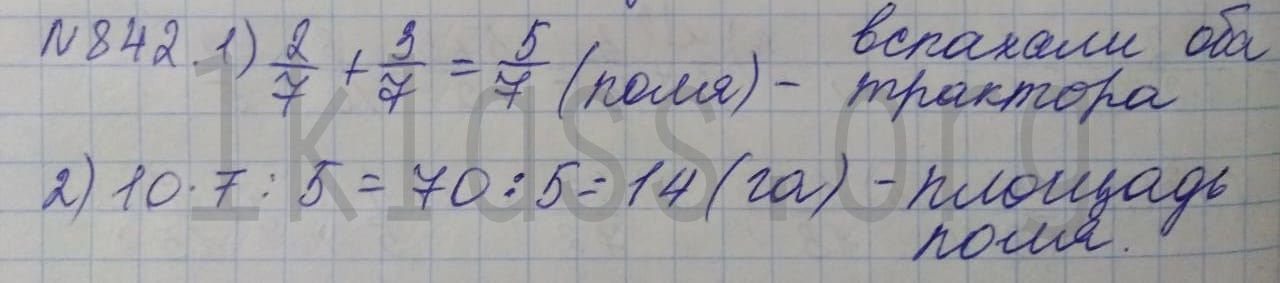 N842. 1) 2/7 + 3/7 = 5/7 (поля) - вспахали оба трактора
2) 10·7:5=70:5=14(га) - площадь
поля.
1klass.org